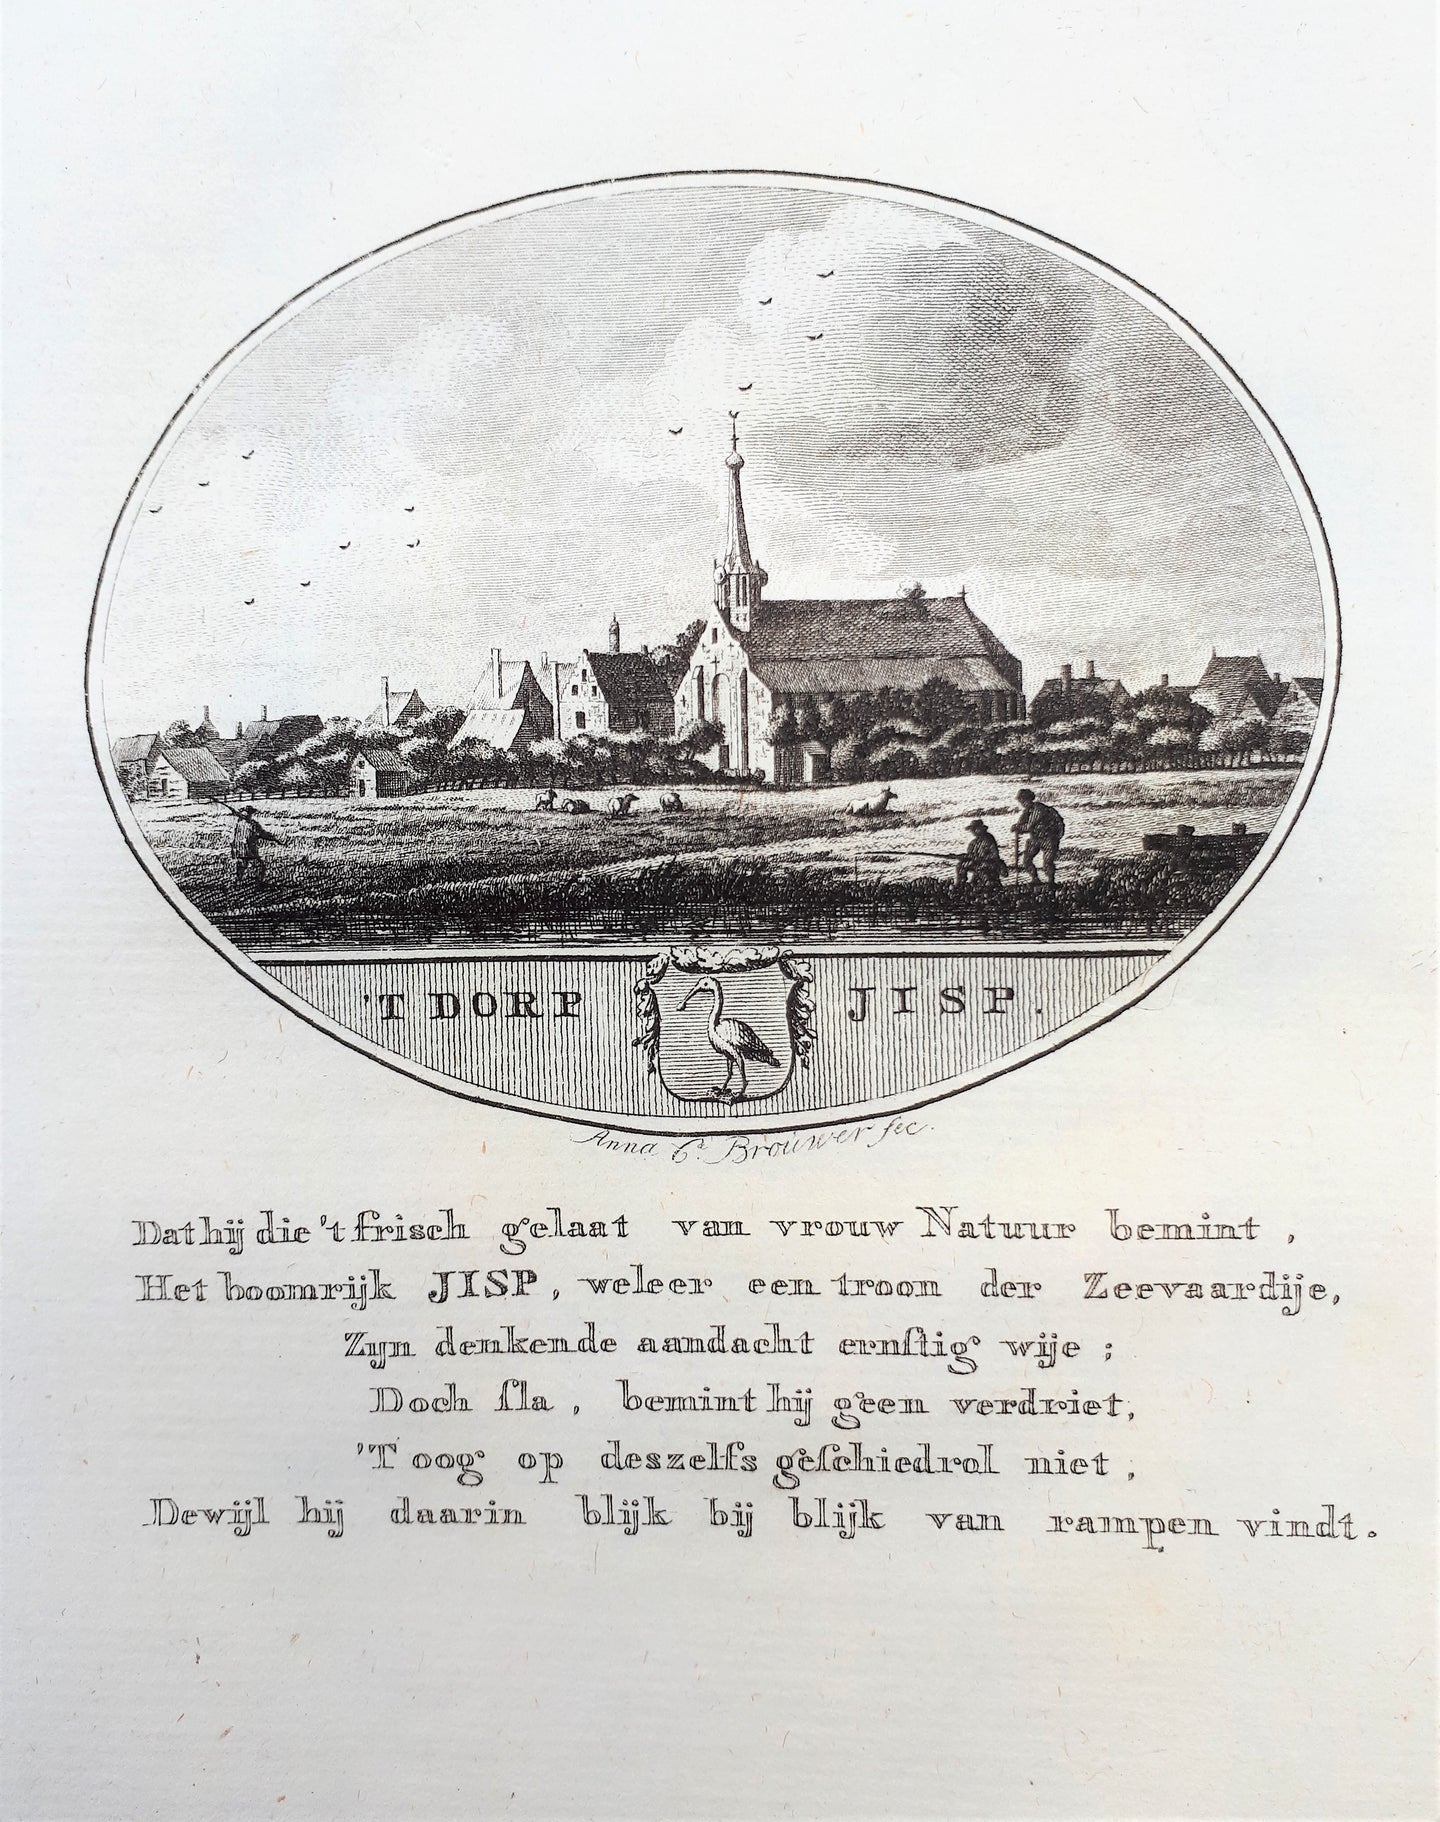 'T DORP JISP.
Anna Cª. Brouwer fec.
Dat hij die 't frisch gelaat van vrouw Natuur bemint,
Het boomrijk JISP, weleer een troon der Zeevaardije,
Zijn denkende aandacht ernſtig wije;
Doch ſla, bemint hij geen verdriet,
'T oog op deszelfs geſchiedrol niet,
Dewijl hij daarin blijk bij blijk van rampen vindt.